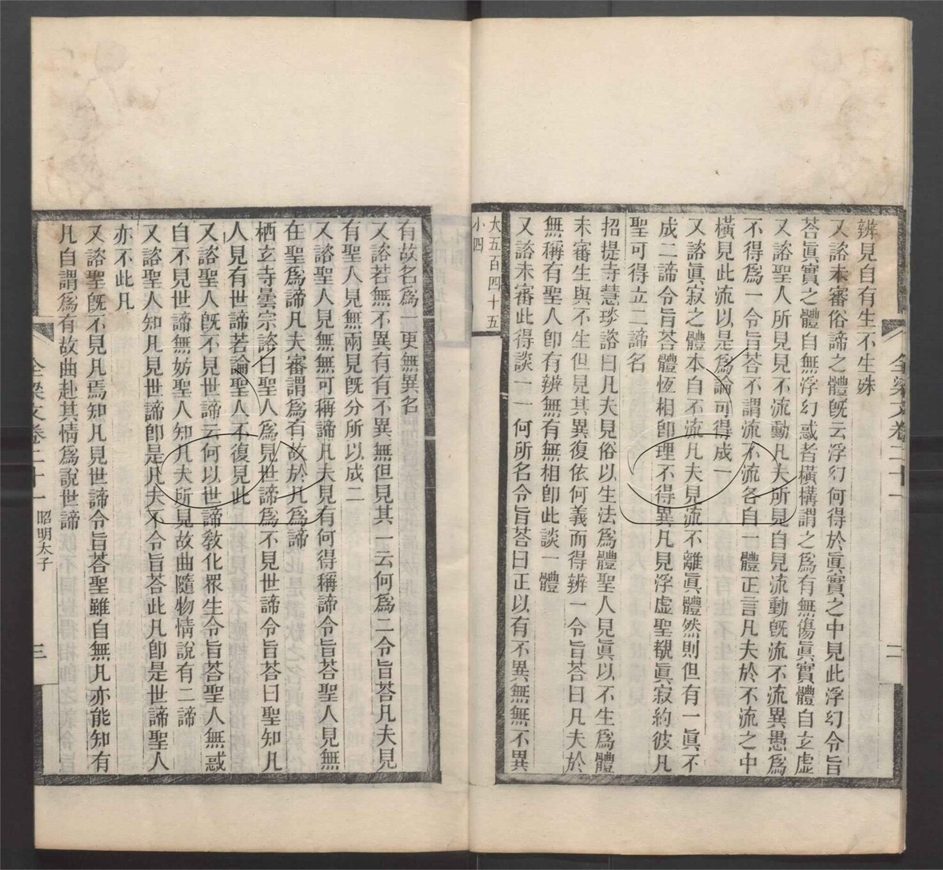 辨見自有生不生殊
又諮未審俗諦之體旣云浮幻何得於眞實之中見此浮幻令旨
荅眞實之體自無浮幻惑者橫搆謂之爲有無傷眞實體自玄虛
又諮聖人所見見不流動凡夫所見自見流動旣流不流異愚爲
不得爲一令旨荅不謂流不流各自一體正言凡夫於不流之中
橫見此流以是爲論可得成一
又諮眞寂之體本自不流凡夫見流不離眞體然則但有一眞不
成二諦令旨荅體恆相卽理不得異凡見浮虛聖覩眞寂約彼凡
聖可得立二諦名
招提寺慧琰諮曰凡夫見俗以生法爲體聖人見眞以不生爲體
未審生與不生但見其異復依何義而得辨一令旨荅曰凡夫於
無稱有聖人卽有辨無有無相卽此談一體
又諮未審此得談一一何所名令旨荅曰正以有不異無無不異
大五百四十五
小四
全梁文卷二十一
二
有故名爲一更無異名
又諮若無不異有有不異無但見其一云何爲二令旨荅凡夫見
有聖人見無兩見旣分所以成二
又諮聖人見無無可稱諦凡夫見有何得稱諦令旨荅聖人見無
在聖爲諦凡夫審謂爲有故於凡爲諦
栖玄寺曇宗諮曰聖人爲見世諦爲不見世諦令旨荅曰聖知凡
人見有世諦若論聖人不復見此
又諮聖人旣不見世諦云何以世諦敎化眾生令旨荅聖人無惑
自不見世諦無妨聖人知凡夫所見故曲隨物情說有二諦
又諮聖人知凡見世諦卽是凡夫不令旨荅此凡卽是世諦聖人
亦不此凡
又諮聖旣不見凡焉知凡見世諦令旨荅聖雖自無凡亦能知有
凡自謂爲有故曲赴其情爲說世諦
全梁文卷二十一
昭明太子
三